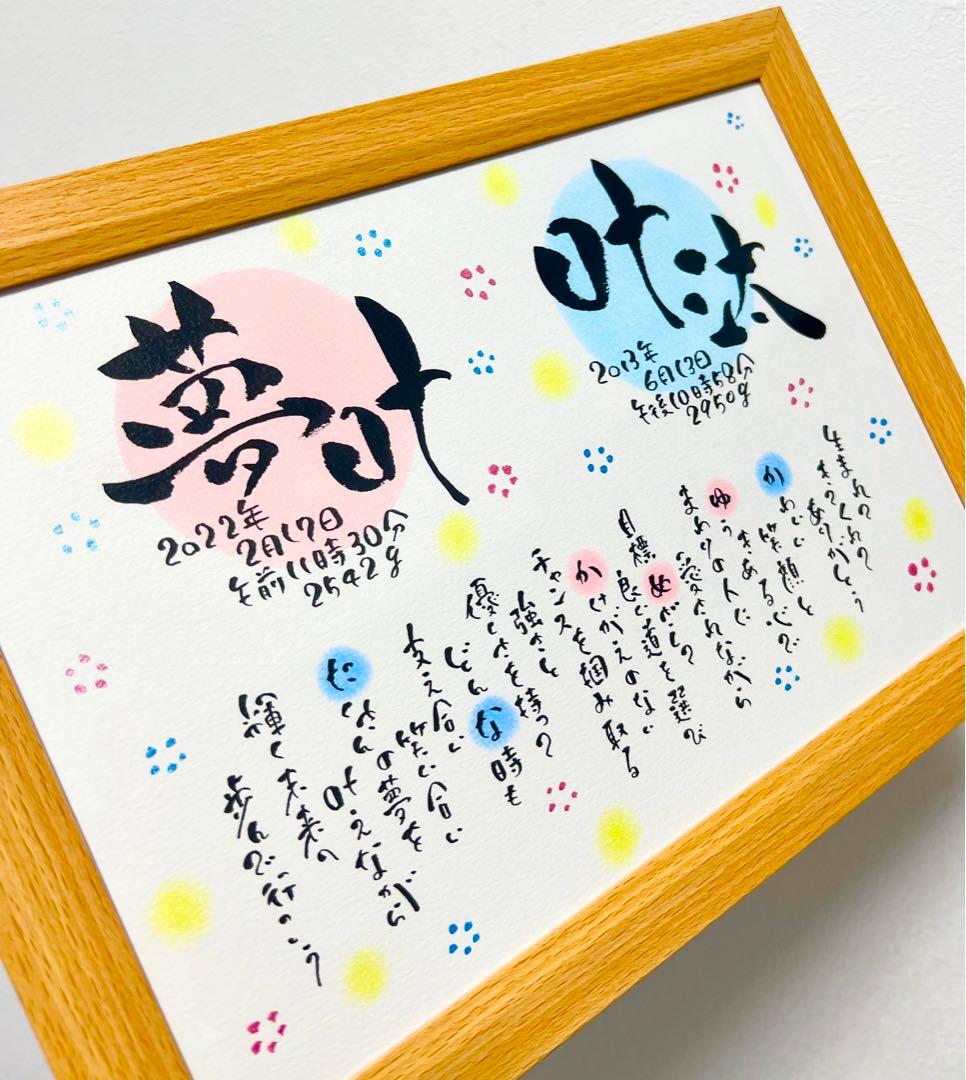 叶汰
2013年
6月13日
午後10時58分
2950g
夢叶
2022年
2月17日
午前11時30分
2542g
生まれて
きてくれて
ありがとう
かわいい笑顔と
ゆうきある心で
まわりの人に
愛されながら
目標めざして
良い道を選び
かけがえのない
チャンスを掴み取る
強さと
優しさを持って
どんな時も
支え合い
笑い合い
たくさんの夢を
叶えながら
輝く未来へ
歩んで行こう